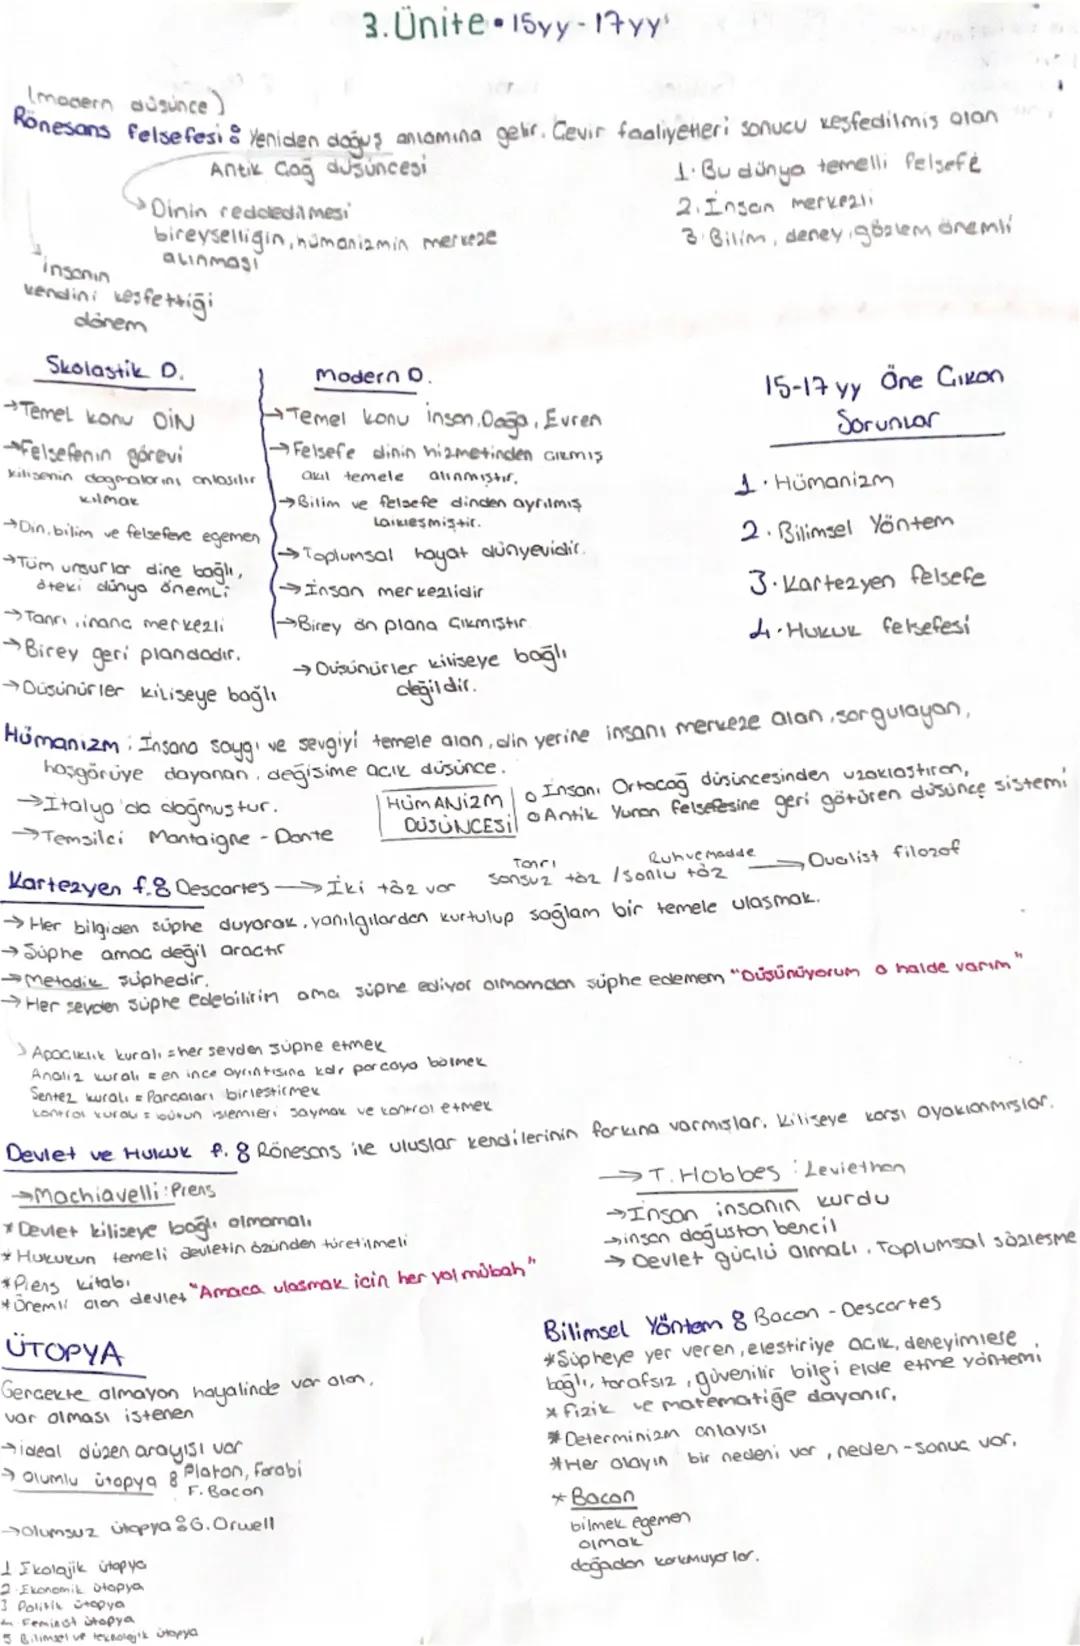 3. Ünite • 15yy - 17yy
(modern düşünce)
Rönesans felsefesi: Yeniden doğuş anlamına gelir. Çevir faaliyetleri sonucu keşfedilmiş olan
Antik Çağ düşüncesi
→ Dinin reddedilmesi
bireyselliğin, hümanizmin merkeze
alınması
insanın
kendini keşfettiği
dönem
1. Bu dünya temelli felsefe
2. İnsan merkezli
3. Bilim, deney, gözlem önemli
Skolastik D.
→ Temel konu DİN
→ Felsefenin görevi
kilisenin dogmalarını anlaşılır
kılmak
→ Din, bilim ve felsefeye egemen
→ Tüm unsurlar dine bağlı,
öteki dünya önemli
→ Tanrı, inanç merkezli
→ Birey geri plandadır.
→ Düşünürler kiliseye bağlı
Modern D.
→ Temel konu insan, Doğa, Evren
→ Felsefe dinin hizmetinden çıkmış
akıl temele alınmıştır.
→ Bilim ve felsefe dinden ayrılmış
laikleşmiştir.
→ Toplumsal hayat dünyevidir.
→ İnsan merkezlidir
→ Birey ön plana çıkmıştır.
→ Düşünürler kiliseye bağlı
değildir.
15-17 yy Öne Çıkan
Sorunlar
1. Hümanizm
2. Bilimsel Yöntem
3. Kartezyen felsefe
4. Hukuk felsefesi
Hümanizm: İnsana saygı ve sevgiyi temele alan, din yerine insanı merkeze alan, sorgulayan,
hoşgörüye dayanan, değişime açık düşünce.
→ İtalya'da doğmuştur.
→ Temsilci Mantaigne - Dante
HÜMANİZM
DÜŞÜNCESİ
o İnsanı Ortaçağ düşüncesinden uzaklaştıran,
o Antik Yunan felsefesine geri götüren düşünce sistemi
Kartezyen f.: Descartes → İki töz var
Tanrı
sonsuz töz /
Ruh ve madde
sonlu töz
→ Dualist filozof
→ Her bilgiden şüphe duyarak, yanılgılardan kurtulup sağlam bir temele ulaşmak.
→ Şüphe amaç değil araçtır
→ Metodik şüphedir.
→ Her şeyden şüphe edebilirim ama şüphe ediyor olmamdan şüphe edemem "Düşünüyorum o halde varım"
Apaçıklık kuralı = her şeyden şüphe etmek
Analiz kuralı = en ince ayrıntısına kdr parçaya bölmek
Sentez kuralı = Parçaları birleştirmek
kontrol kuralı = bütün işlemleri saymak ve kontrol etmek
Devlet ve Hukuk f.: Rönesans ile uluslar kendilerinin farkına varmışlar. Kiliseye karşı ayaklanmışlar.
→ Machiavelli: Prens
* Devlet kiliseye bağlı olmamalı
* Hukukun temeli devletin özünden türetilmeli
* Prens kitabı
* Önemli olan devlet "Amaca ulaşmak için her yol mübah"
→ T. Hobbes: Leviethan
→ İnsan insanın kurdu
→ insan doğuştan bencil
→ Devlet güçlü olmalı, Toplumsal sözleşme
ÜTOPYA
Gerçekte olmayan hayalinde var olan,
var olması istenen
→ ideal düzen arayışı var
→ Olumlu ütopya: Platon, Farabi
F. Bacon
→ Olumsuz ütopya: G. Orwell
1 Ekolojik ütopya
2. Ekonomik ütopya
3 Politik ütopya
4 Feminist ütopya
5 Bilimsel ve teknolojik ütopya
Bilimsel Yöntem: Bacon - Descartes
* Şüpheye yer veren, eleştiriye açık, deneyimlere
bağlı, tarafsız, güvenilir bilgi elde etme yöntemi
* Fizik ve matematiğe dayanır.
* Determinizm anlayışı
* Her olayın bir nedeni var, neden - sonuç var.
* Bacon
bilmek egemen
olmak
doğadan korkmuyorlar.